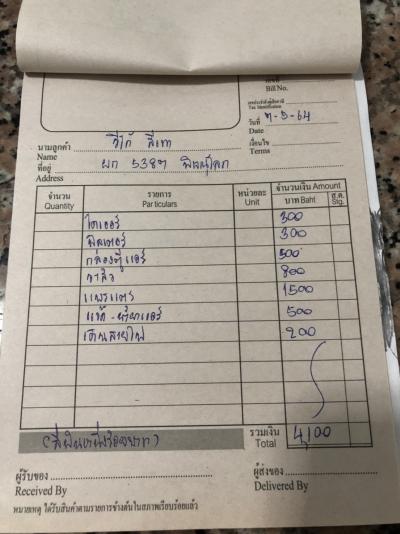 Bill No.
เลขประจำตัวผู้เสียภาษี
Tax Identification
วันที่ 7-5-64
Date
นามลูกค้า วีโก้ สีเทา
Name
เงื่อนไข
Terms
ที่อยู่ ผก 5387 พิษณุโลก
Address
จำนวน รายการ หน่วยละ จำนวนเงิน Amount
Quantity Particulars Unit บาท Baht ส.ต. Stg.
ไดเออร์ 300
ฟิลเตอร์ 300
กล่องตู้แอร์ 500
วาล์ว 800
แผงแอร์ 1500
แก๊ส - น้ำยาแอร์ 500
เดินสายไฟ 200
(สี่พันหนึ่งร้อยบาท) รวมเงิน 4,100
Total
ผู้รับของ ผู้ส่งของ
Received By Delivered By
หมายเหตุ ได้รับสินค้าตามรายการข้างต้นในสภาพเรียบร้อยแล้ว